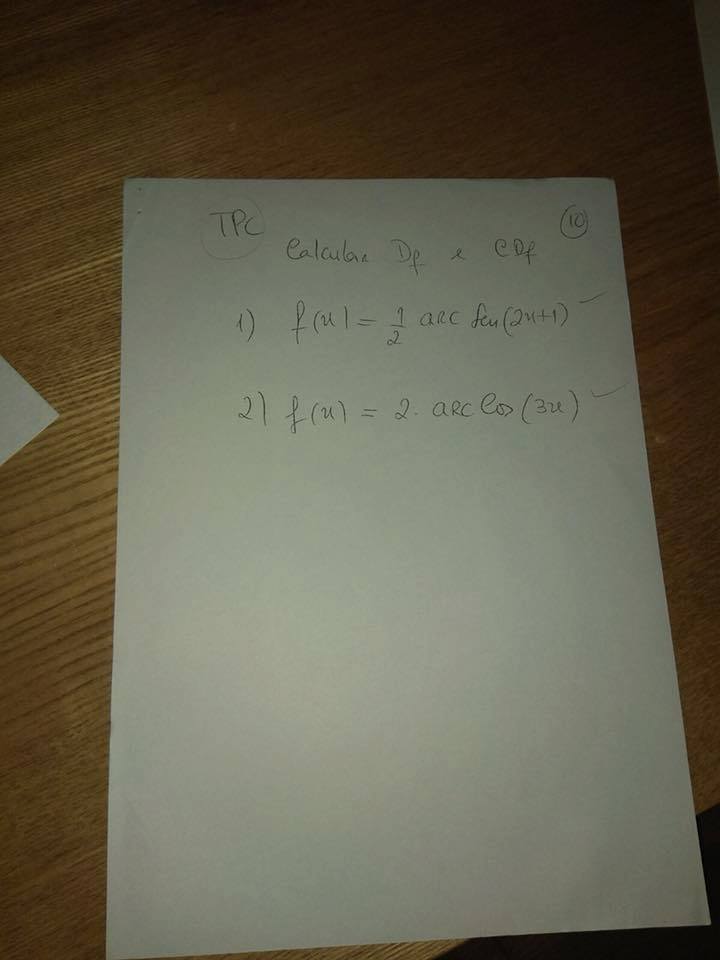 TPC 10
Calcular Df e CDf
1) f(x) = 1/2 arc sen(2x+1)
2) f(x) = 2. arc cos(3x)